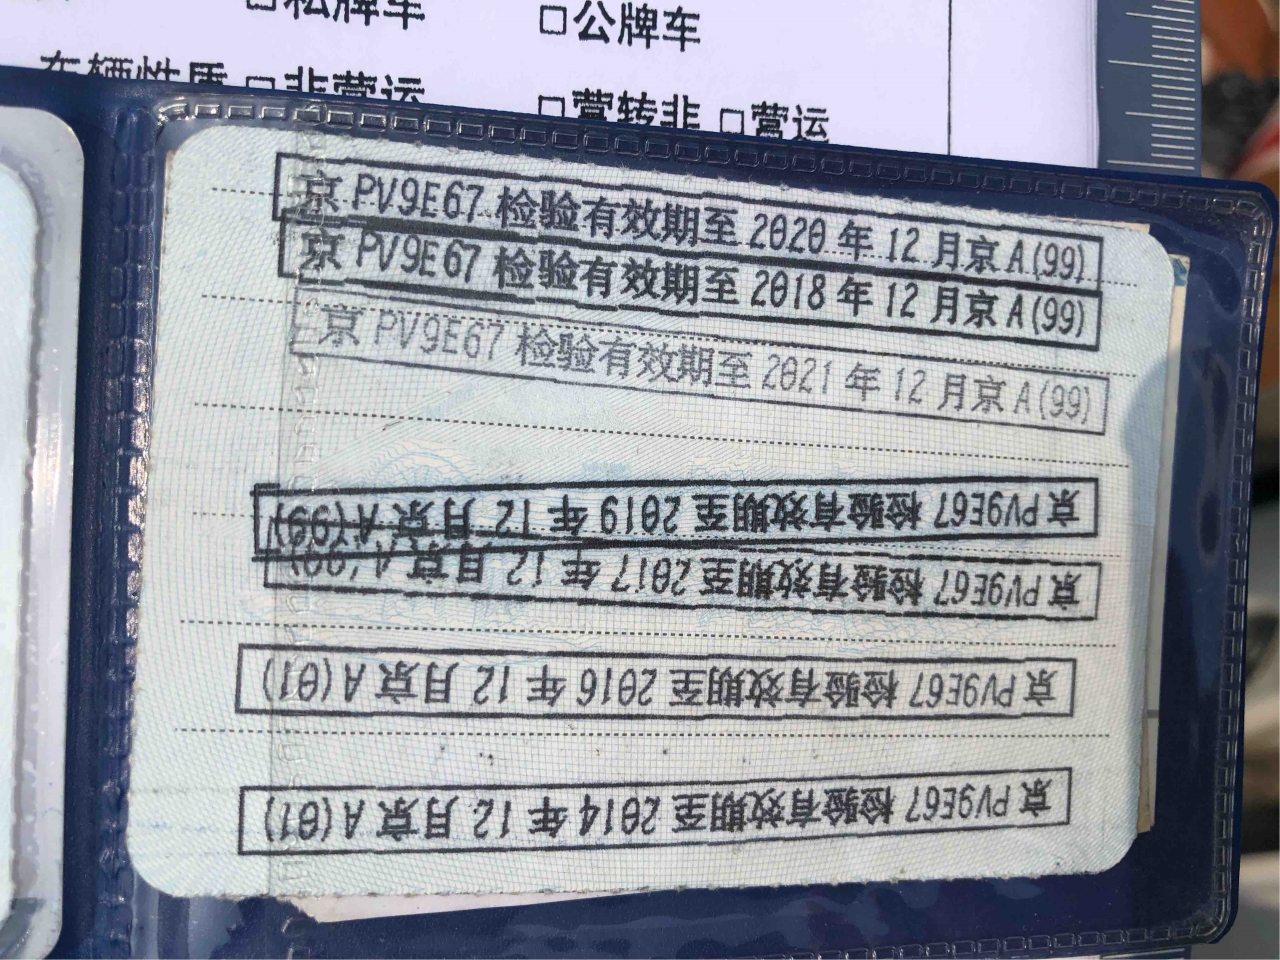 □私牌车 □公牌车
车辆性质 □非营运 □营转非 □营运
京 PV9E67 检验有效期至 2020 年 12 月京 A(99)
京 PV9E67 检验有效期至 2018 年 12 月京 A(99)
京 PV9E67 检验有效期至 2021 年 12 月京 A(99)
京 PV9E67 检验有效期至 2019 年 12 月京 A(99)
京 PV9E67 检验有效期至 2017 年 12 月京 A(99)
京 PV9E67 检验有效期至 2016 年 12 月京 A(01)
京 PV9E67 检验有效期至 2014 年 12 月京 A(01)